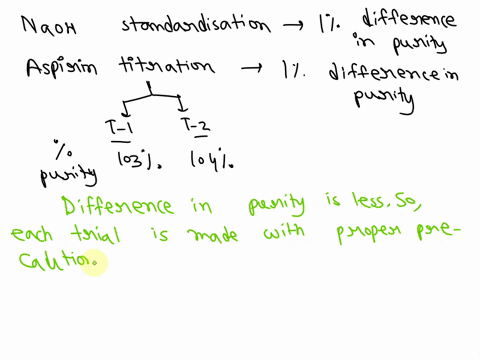 NaOH standardisation → 1% difference in purity
Aspirim titration → 1% difference in purity
T-1 T-2
% purity 103%. 104%.
Difference in purity is less. So,
each trial is made with proper pre-
caution.